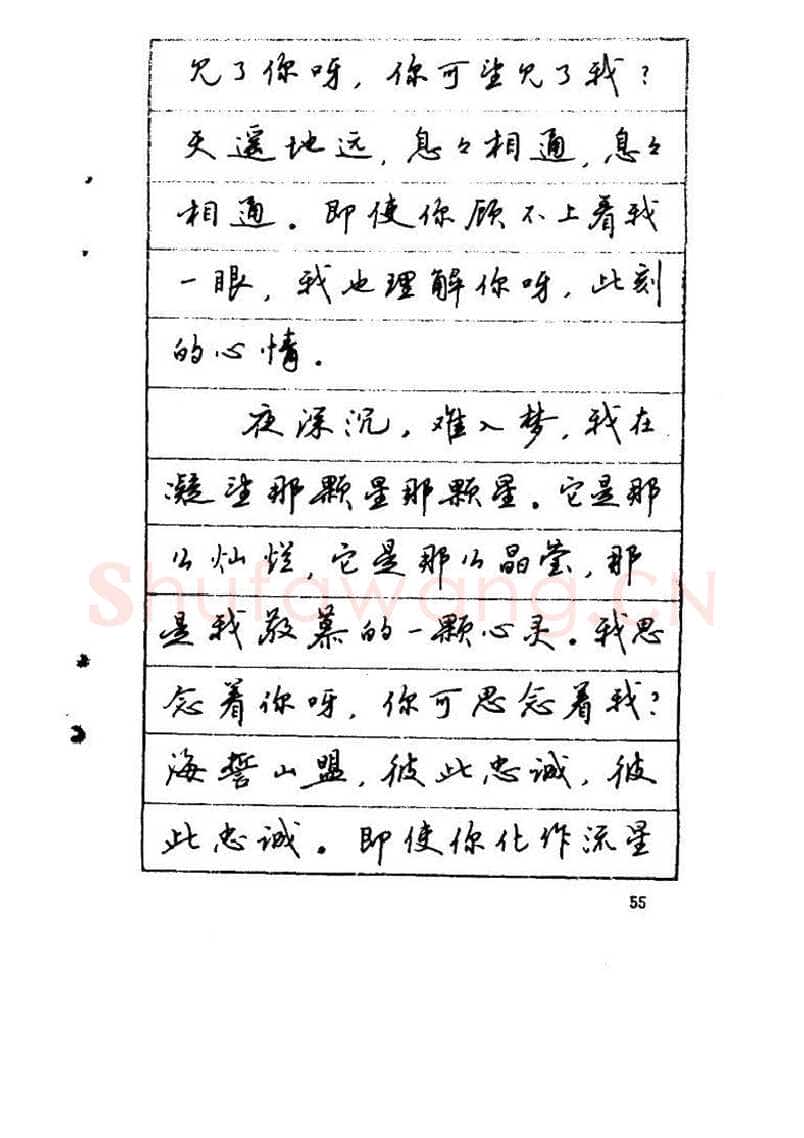 见了你呀，你可望见了我？
天遥地远，息々相通，息々
相通。即使你顾不上看我
一眼，我也理解你呀，此刻
的心情．
夜深沉，难入梦，我在
凝望那颗星那颗星。它是那
么灿烂，它是那么晶莹，那
是我敬慕的一颗心灵。我思
念着你呀，你可思念着我？
海誓山盟，彼此忠诚，彼
此忠诚。即使你化作流星
55
Shufawang.CN